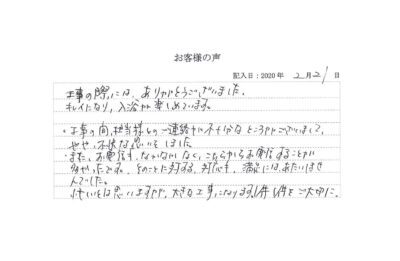 お客様の声
記入日:2020年 2月21日
工事の際には、ありがとうございました。
キレイになり、入浴が楽しめています。
・工事の間、担当様よりのご連絡が不十分なところがございまして、
やや、不快な思いをしました。
・また、お電話も、なかなかなく、こちらからお電話することが
多かったです。そのことに対する、対応も、満足にはあたいしませ
んでした。
忙しいとは思いますが、大きな工事になりますし1件1件をご大切に。